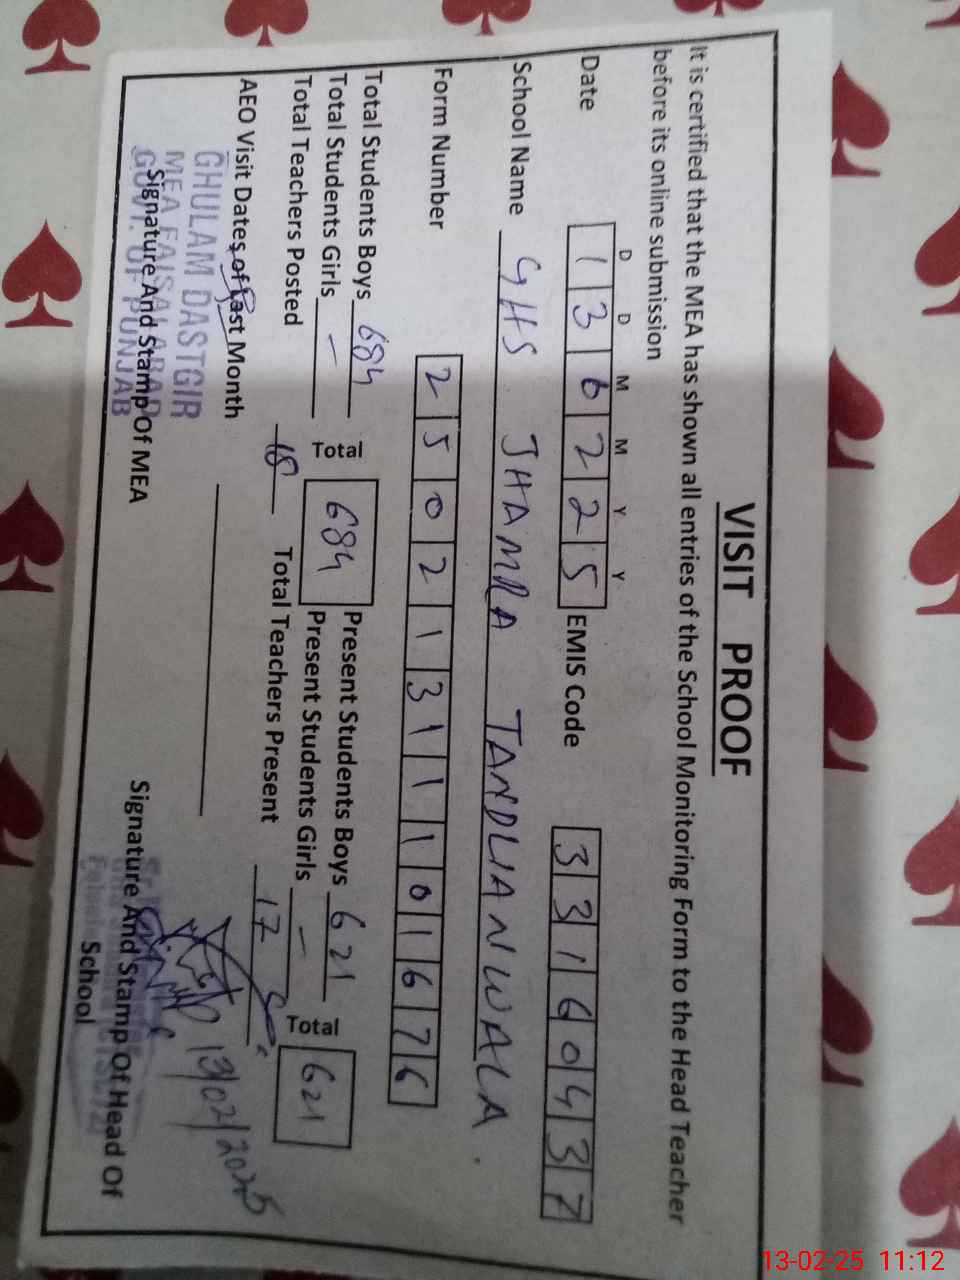 VISIT PROOF
It is certified that the MEA has shown all entries of the School Monitoring Form to the Head Teacher
before its online submission
D D M M Y Y
Date 1 3 0 2 2 5 EMIS Code 3 3 1 6 0 4 3 7
School Name GHS JHAMRA TANDLIANWALA.
Form Number 2 5 0 2 1 3 1 1 1 0 1 6 7 6
Total Students Boys 684 Present Students Boys 621
Total Students Girls - Total 684 Present Students Girls - Total 621
Total Teachers Posted 18 Total Teachers Present 17
AEO Visit Dates of Last Month
GHULAM DASTGIR
MEA FAISALABAD
GOVT. OF PUNJAB
13/02/2025
Signature And Stamp Of MEA Signature And Stamp Of Head Of
School
13-02-25 11:12